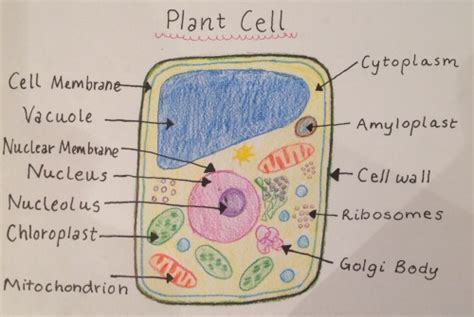 Plant Cell
Cell Membrane
Vacuole
Nuclear Membrane
Nucleus
Nucleolus
Chloroplast
Mitochondrion
Cytoplasm
Amyloplast
Cell wall
Ribosomes
Golgi Body